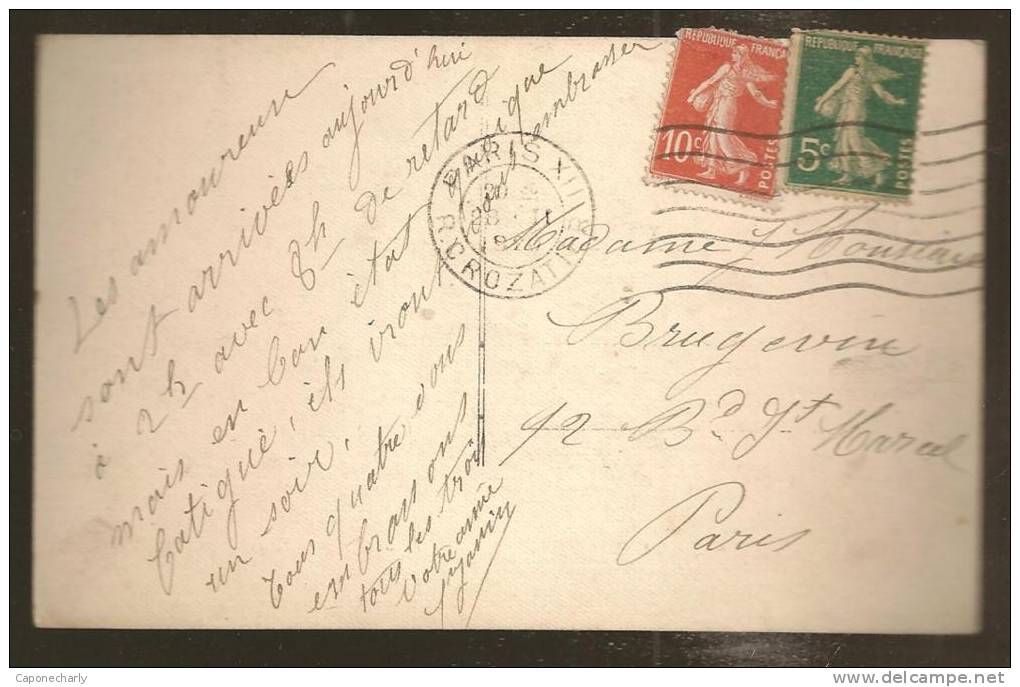 Les amoureux
sont arrivés aujourd'hui
à 2h avec 8h de retard
mais en bon état quoique
fatigué, ils iront embrasser
un soir,
Tous quatre vous
embrassons
tous les trois
Votre amie
RÉPUBLIQUE FRANÇAISE
10c
POSTES
REPUBLIQUE FRANÇAISE
5c
POSTES
PARIS XII
R. CROZATIER
Madame
Brugevin
42 Bd St Marcel
Paris
Caponecharly
www.delcampe.net